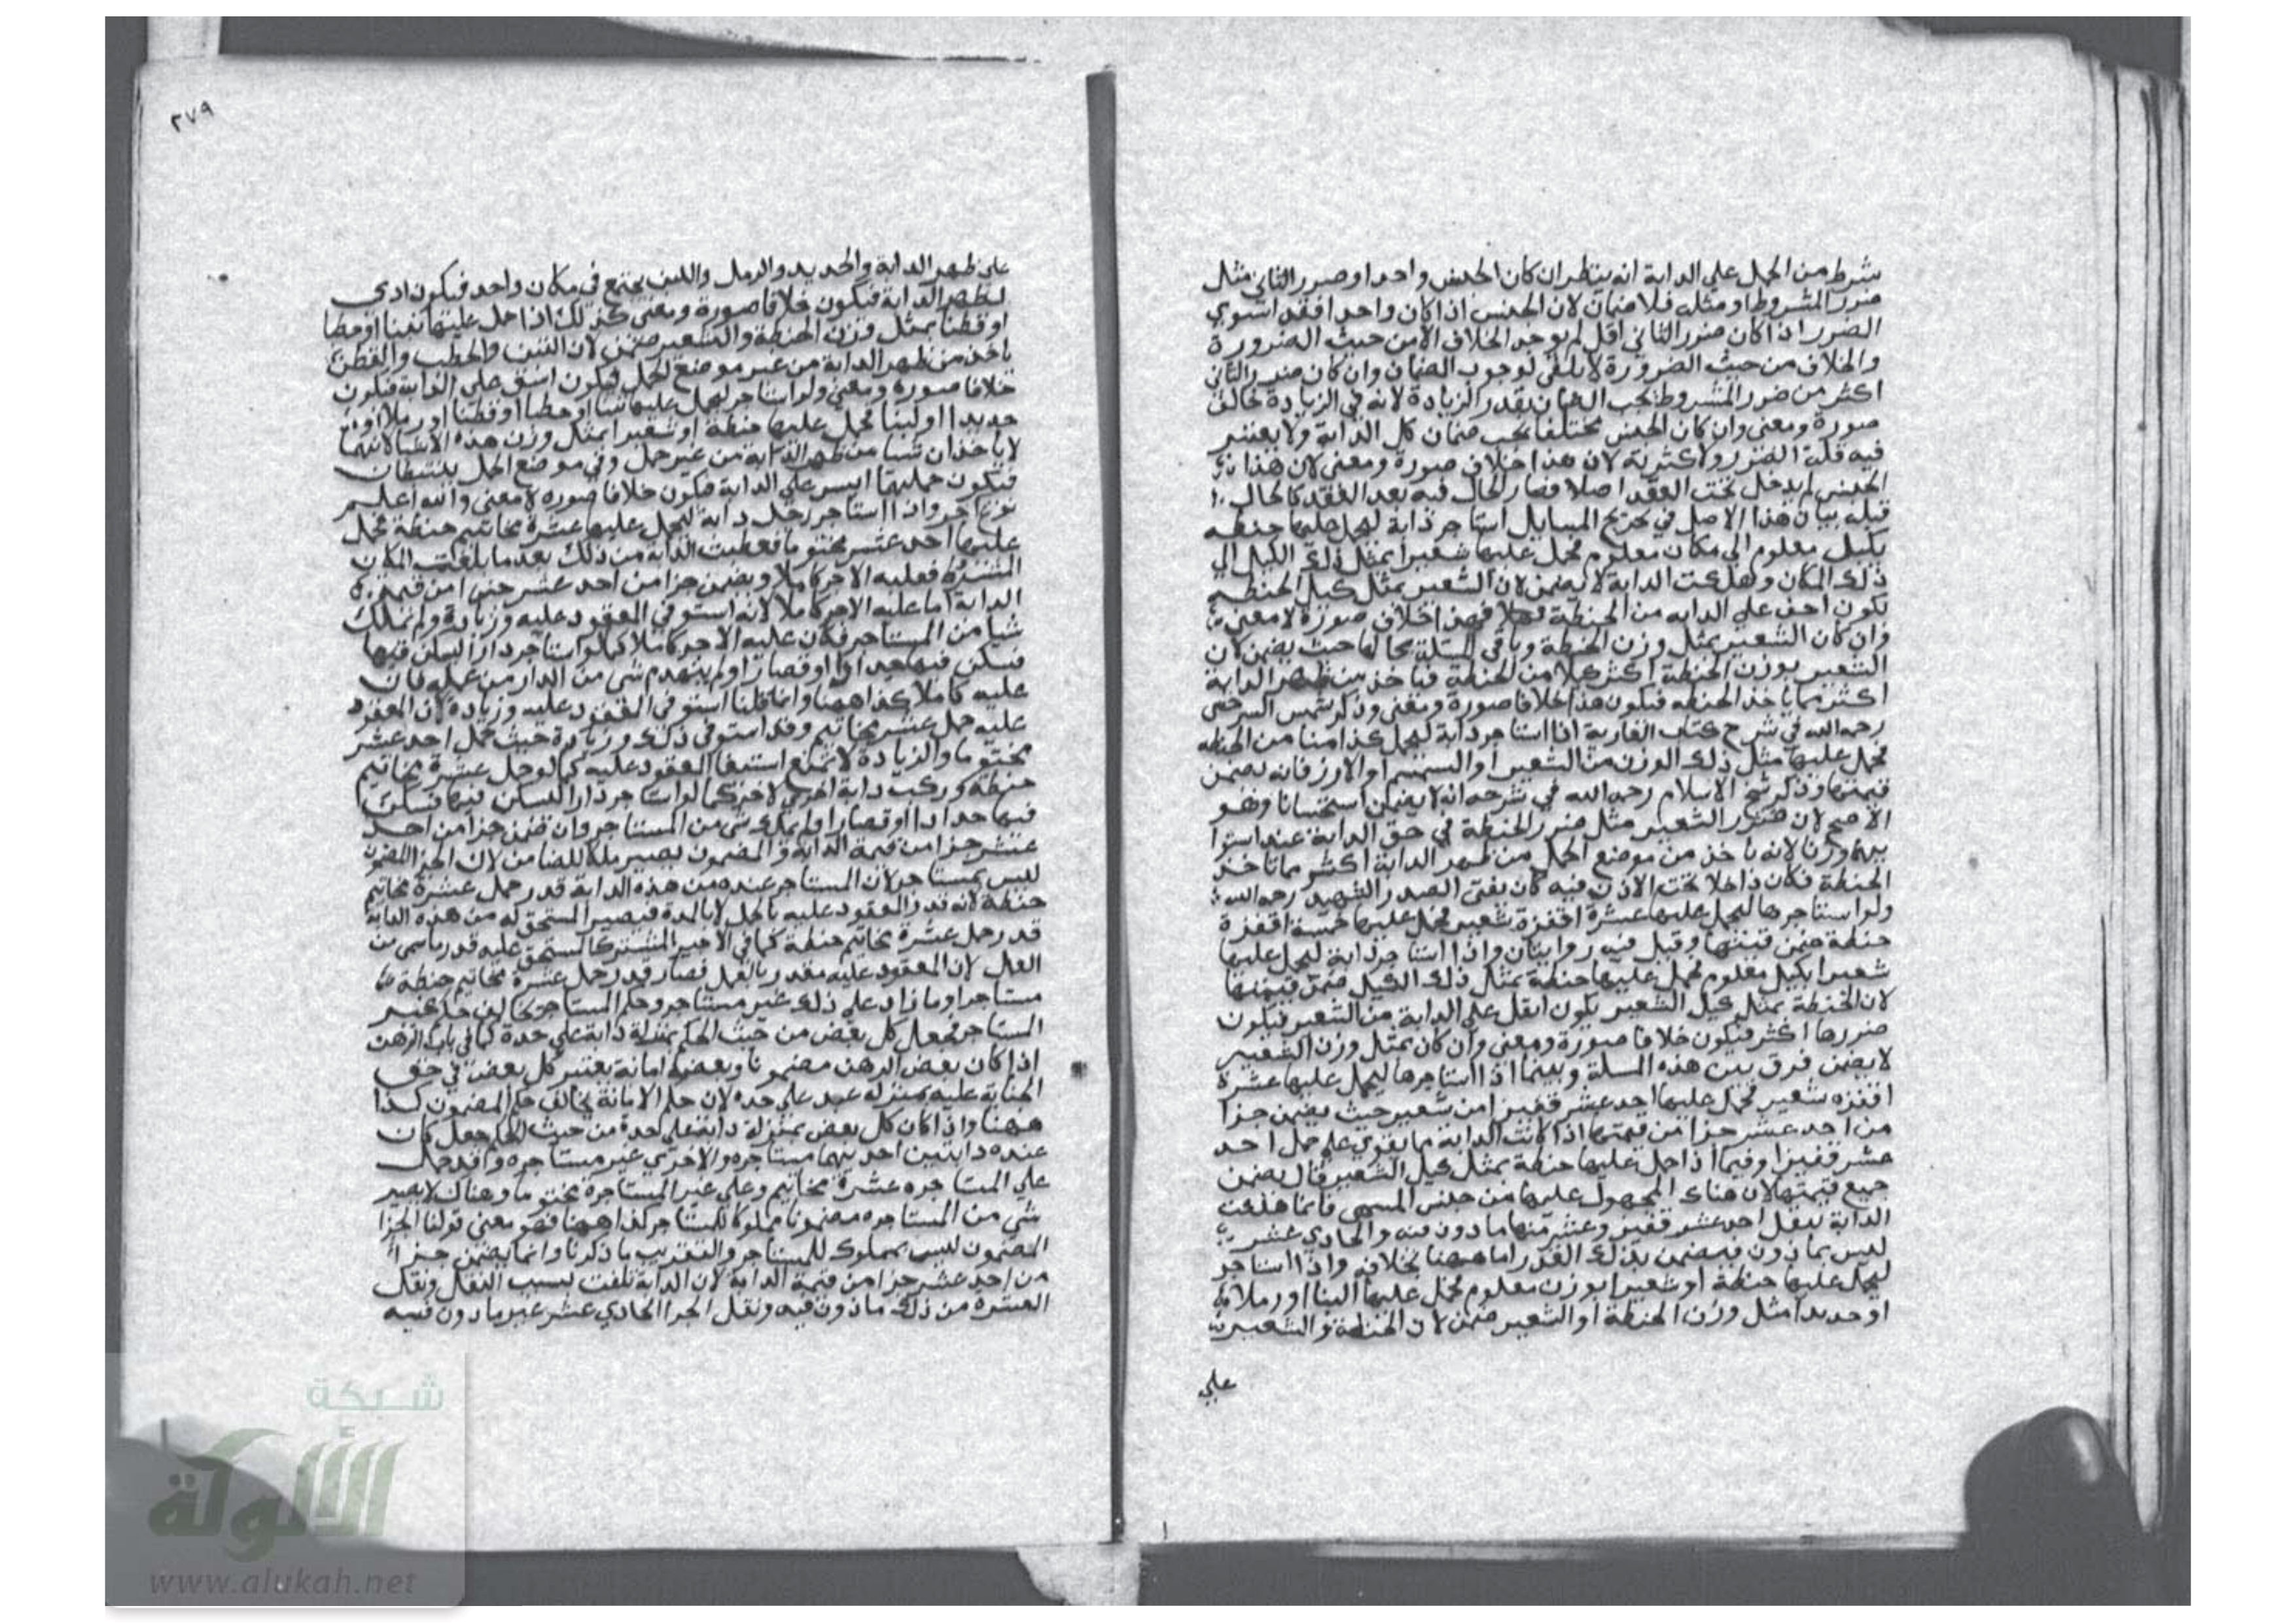 شرط من الحمل علي الدابة انه ينظر ان كان الجنس واحدا وضرر الثاني مثل
ضرر المشروط او مثله فلا ضمان لان الجنس اذا كان واحدا فقد استوي
الضرر اذا كان ضرر الثاني اقل لم يوجد الخلاف الا من حيث الضرورة
والخلاف من حيث الضرورة لا يكفي لوجوب الضمان وان كان ضرر الثاني
اكثر من ضرر المشروط يجب الضمان بقدر الزيادة لانه في الزيادة خالف
صورة ومعني وان كان الجنس مختلفا يجب ضمان كل الدابة ولا يعتبر
فيه قلة الضرر واكثريته لان هذا خلاف صورة ومعني لان هذا
الجنس لم يدخل تحت العقد اصلا فصار الحال فيه بعد العقد كالحال
قبله بيان هذا الاصل في تخريج المسايل استاجر دابة ليحمل عليها حنطة
بكيل معلوم الي مكان معلوم فحمل عليها شعيرا بمثل ذلك الكيل الي
ذلك المكان وهلكت الدابة لا يضمن لان الشعير بمثل كيل الحنطة
يكون اخف علي الدابه من الحنطة فهذا خلاف صورة لا معني
وان كان الشعير بمثل وزن الحنطة وباقي المسلة بحالها حيث يضمن لان
الشعير بوزن الحنطة اكثر كيلا من الحنطة فياخذ من ظهر الدابة
اكثر مما ياخذ الحنطه فيكون هذا خلافا صورة ومعني وذكر شمس السرخسي
رحمه الله في شرح كتاب العارية اذا استاجر دابة ليحمل كذا منا من الحنطه
فحمل عليها مثل ذلك الوزن من الشعير او السمسم او الارز فانه يضمن
قيمتها وذكر شيخ الاسلام رحمه الله في شرحه انه لا يضمن استحسانا وهو
الاصح لان ضرر الشعير مثل ضرر الحنطة في حق الدابة عند استوا
يهما وزنا لانه ياخذ من موضع الحمل من ظهر الدابة اكثر مما تاخذ
الحنطة فكان داخلا تحت الاذن فيه كان يفتي الصدر الشهيد رحمه الله
ولو استاجرها ليحمل عليها عشرة اقفزة شعير فحمل عليها خمسة اقفزة
حنطة ضمن قيمتها وقيل فيه روايتان واذا استاجر دابة ليحمل عليها
شعيرا بكيل معلوم فحمل عليها حنطة بمثل ذلك الكيل ضمن قيمتها
لان الحنطة بمثل كيل الشعير يكون اثقل علي الدابة من الشعير فيكون
ضررها اكثر فيكون خلافا صورة ومعني وان كان بمثل وزن الشعير
لا يضمن فرق بين هذه المسلة وبينما اذا استاجرها ليحمل عليها عشرة
اقفزه شعير فحمل عليها احد عشر قفيزا من شعير حيث يضمن جزا
من احد عشر جزا من قيمتها اذا كانت الدابة مما يقوي علي حمل احد
عشر قفيزا وفيما اذا حمل عليها حنطة بمثل كيل الشعير قال يضمن
جميع قيمتها لان هناك المحمول عليها من جنس المسمي فانما هلكت
الدابة بثقل احد عشر قفيز وعشر منها مادون فيه والحادي عشر
ليس بمادون فيضمن بذلك القدر اما ههنا بخلافه واذا استاجر
ليحمل عليها حنطة او شعيرا بوزن معلوم فحمل عليها لبنا او رملا
او حديدا مثل وزن الحنطة او الشعير ضمن لان الحنطة والشعير
علي
٢٧٩
علي ظهر الدابة والحديد والرمل واللبن يجتمع في مكان واحد فيكون ادي
لظهر الدابة فيكون خلافا صورة ومعني كذلك اذا حمل عليها تبنا او حطبا
او قطنا بمثل وزن الحنطة والشعير ضمن لان التبن والحطب والقطن
ياخذ من ظهر الدابة من غير موضع الحمل فيكون اشق علي الدابة فيكون
خلافا صوره ومعني ولو استاجر ليحمل عليها تبنا او حطبا او قطنا او رملا او
حديدا او لبنا فحمل عليها حنطة او شعيرا بمثل وزن هذه الاشيا لانهما
لا ياخذان شيا من ظهر الدابة من غير حمل وفي موضع الحمل ينبسطان
فيكون حملهما ايسر علي الدابة فيكون خلافا صوره لا معني والله اعلم
نوع اخر واذا استاجر رجل دابة ليحمل عليها عشرة مخاتيم حنطة فحمل
عليها احد عشر مختوما فعطبت الدابه من ذلك بعد ما بلغت المكان
المشترط فعليه الاجر كاملا ويضمن جزا من احد عشر جزا من قيمة
الدابة اما عليه الاجر كاملا لانه استوفي المعقود عليه وزيادة ولم يملك
شيا من المستاجر فكان عليه الاجر كاملا كما لو استاجر دارا ليسكن فيها
فسكن فيها حدادا او قصارا ولم ينهدم شي من الدار من عمله فان
عليه كاملا كذا ههنا وانما قلنا استوفي المعقود عليه وزيادة لان المعقود
عليه حمل عشر مخاتيم وقد استوفي ذلك وزيادة حيث حمل احد عشر
مختوما والزيادة لا تمنع استيفا المعقود عليه كما لو حمل عشرة مخاتيم
حنطة وركب دابة اخري لاخر كما لو استاجر دارا ليسكن فيها فسكن
فيها حدادا او قصارا ولم يملك شي من المستاجر وان ضمن جزا من احد
عشر جزا من قيمة الدابة والمضمون يصير ملكا للضامن لان الجزا المضمون
ليس بمستاجر لان المستاجر عنده من هذه الدابة قدر حمل عشرة مخاتيم
حنطة لانه قدر المعقود عليه بالحمل لا بالمدة فيصير المستحق له من هذه الدابة
قدر حمل عشرة مخاتيم حنطة كما في الاجير المشترك المستحق عليه قدر ما سمي من
العمل لان المعقود عليه مقدر بالعمل فصار قدر حمل عشرة مخاتيم حنطة
مستاجرا وما زاد علي ذلك غير مستاجر وحكم المستاجر يخالف حكم غير
المستاجر فجعل كل بعض من حيث الحكم بمنزلة دابة علي حدة كما في باب الرهن
اذا كان بعض الرهن مضمونا وبعضه امانة يعتبر كل بعض في حق
الجناية عليه بمنزله عبد علي حده لان حكم الامانة يخالف حكم المضمون كذا
ههنا واذا كان كل بعض بمنزلة دابة علي حدة من حيث الحكم جعل كان
عنده دابتين احديهما مستاجره والاخري غير مستاجره وقد حمل
علي المستاجره عشرة مخاتيم وعلي غير المستاجرة مختوما وهناك لا يصير
شي من المستاجره مضمونا مملوكا للمستاجر كذا ههنا فهو معني قولنا الجزا
المضمون ليس بمملوك للمستاجر والتقريب ما ذكرنا وانما يضمن جزا
من احد عشر جزا من قيمة الدابة لان الدابة تلفت بسبب الثقل وثقل
العشرة من ذلك مادون فيه وثقل الجزا الحادي عشر غير مادون فيه
شبكة
الألوكة
www.alukah.net